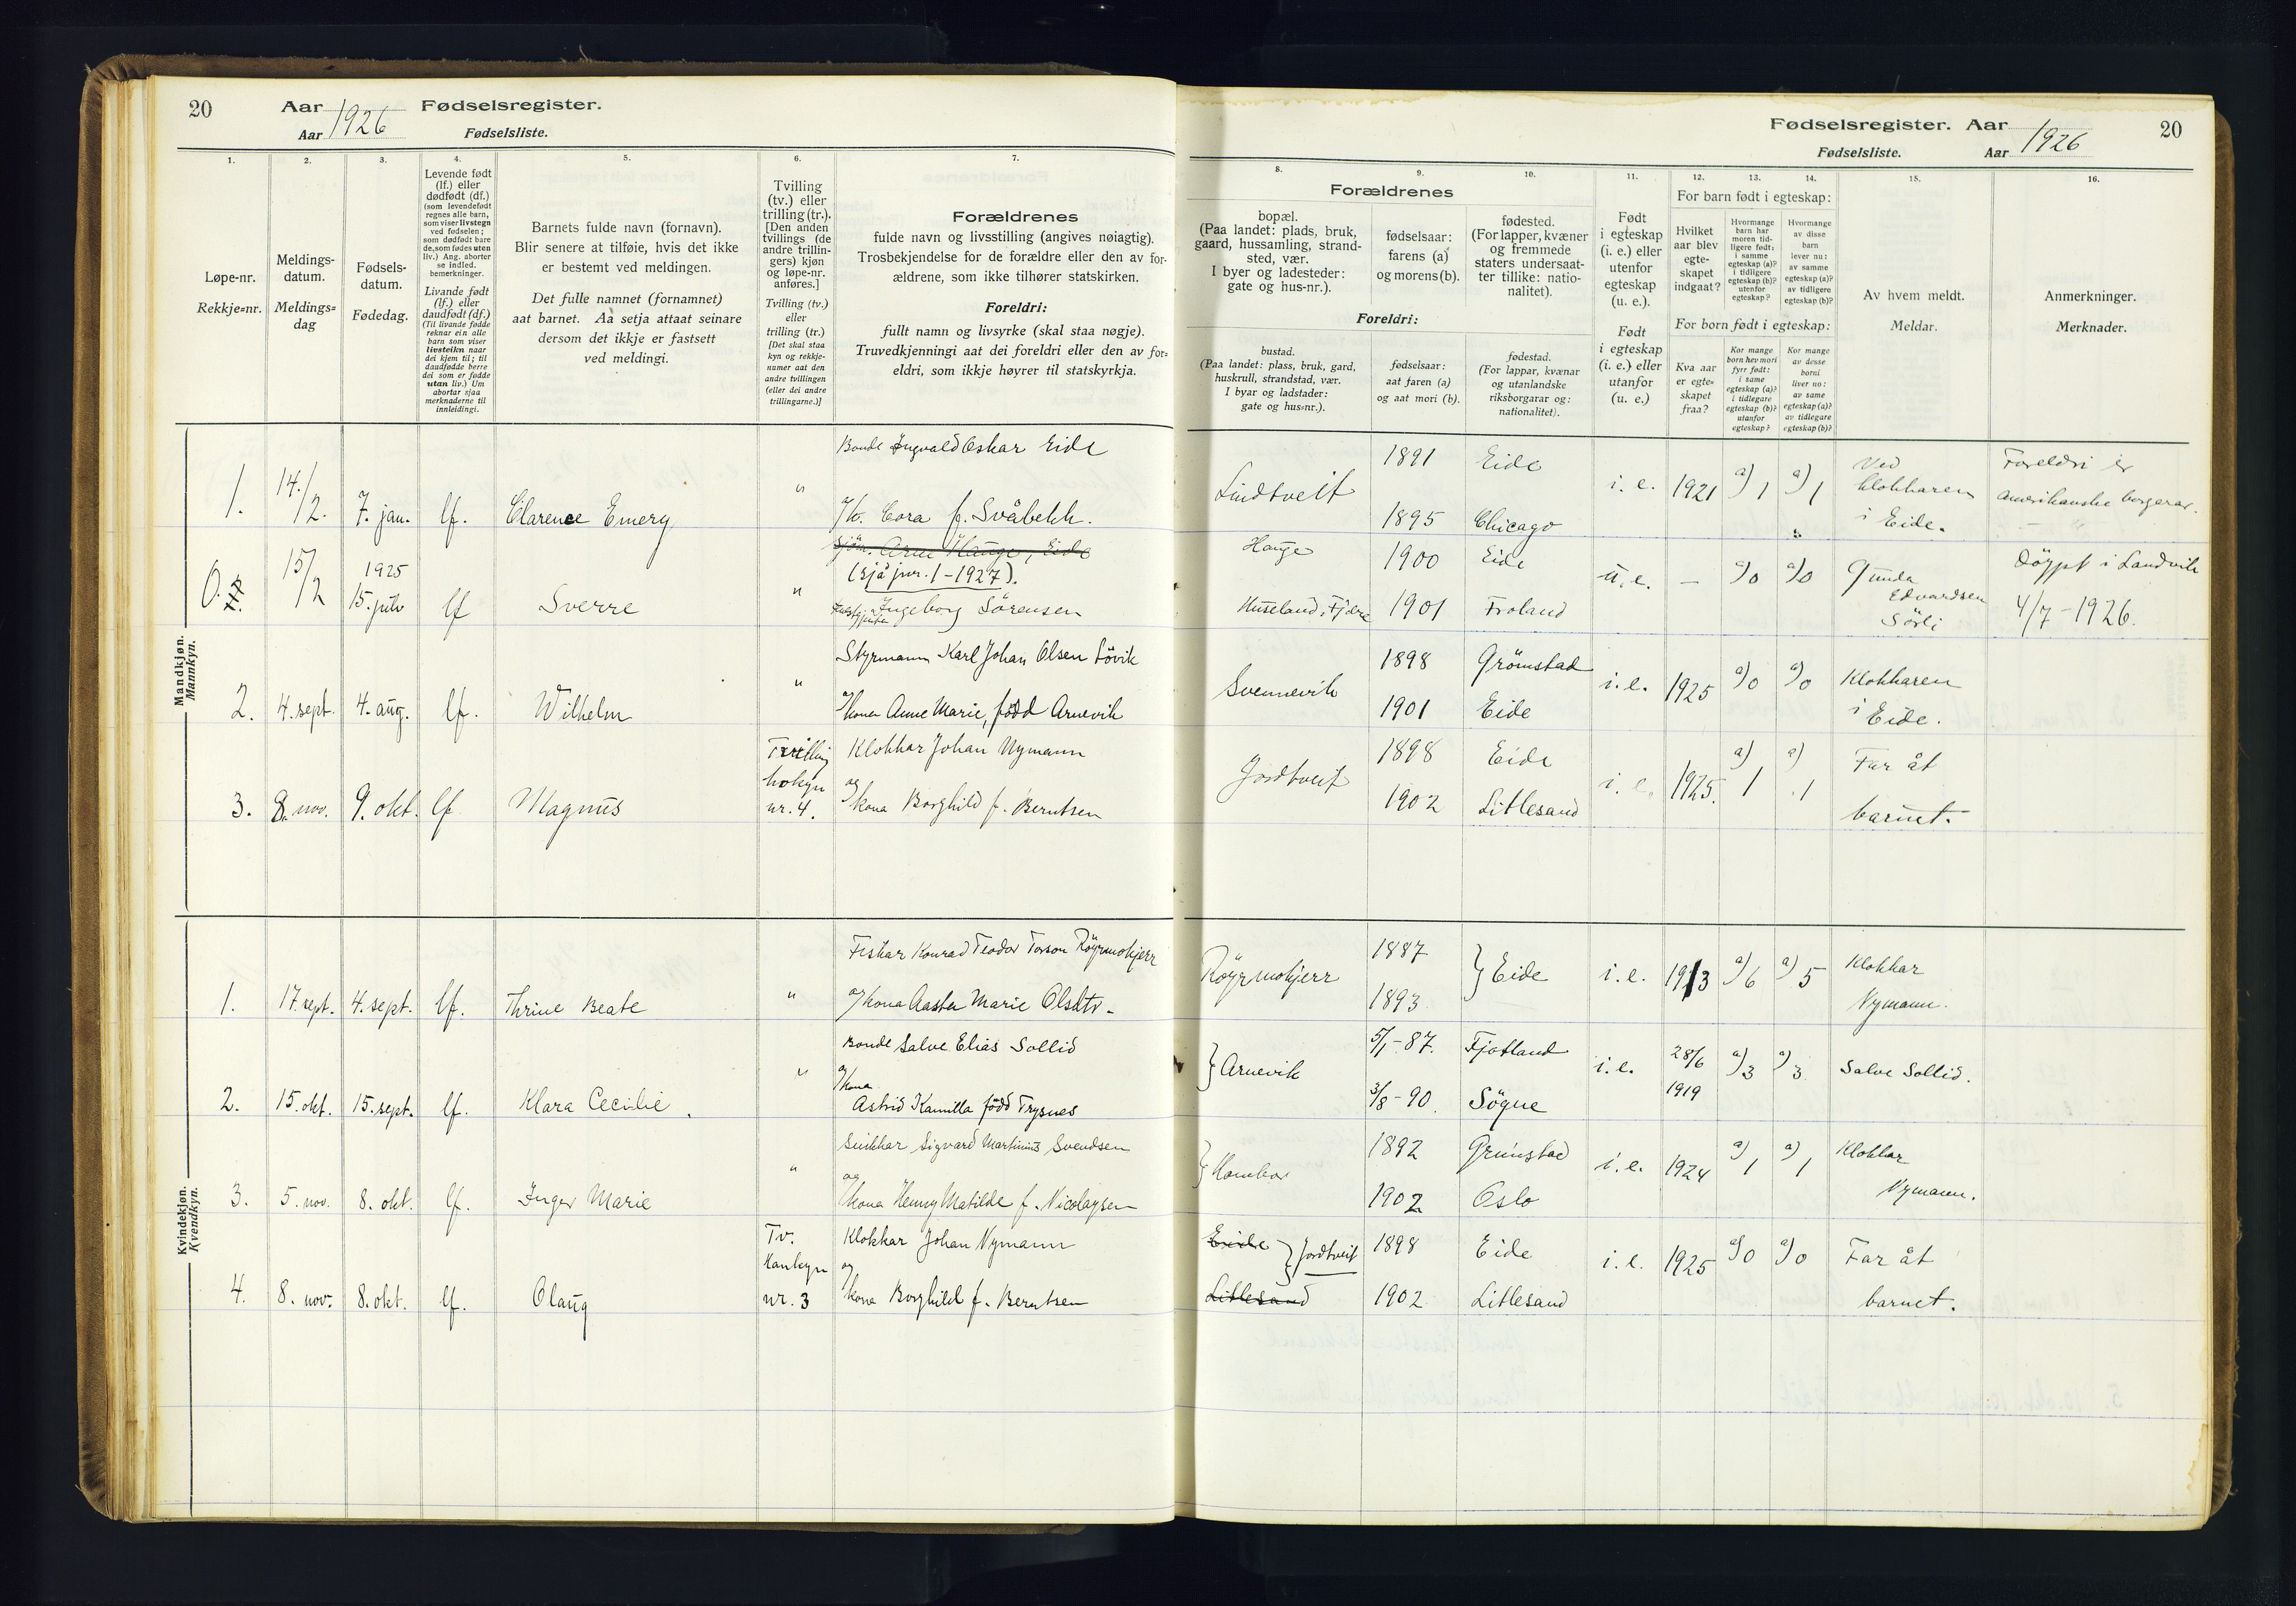 20
Aar 1926 Fødselsregister.
Aar Fødselsliste.
Fødselsregister. Aar 1926 20
Fødselsliste. Aar
1. 2. 3. 4. 5. 6. 7.
Løpe-nr.
Rekkje=nr.
Meldings-
datum.
Meldings=
dag
Fødsels-
datum.
Fødedag.
Levende født
(lf.) eller
dødfødt (df.)
(som levendefødt
regnes alle barn,
som viser livstegn
ved fødselen;
som dødfødt bare
de, som fødes uten
liv.) Ang. aborter
se indled.
bemerkninger.
Livande født
(lf.) eller
daudfødt (df.)
(Til livande fødde
reknar ein alle
barn som viser
livsteikn naar
dei kjem til; til
daudfødde berre
dei som er fødde
utan liv.) Um
abortar sjaa
merknaderne til
innleidingi.
Barnets fulde navn (fornavn).
Blir senere at tilføie, hvis det ikke
er bestemt ved meldingen.
Det fulle namnet (fornamnet)
aat barnet. Aa setja attaat seinare
dersom det ikkje er fastsett
ved meldingi.
Tvilling
(tv.) eller
trilling (tr.).
[Den anden
tvillings (de
andre trillin-
gers) kjøn
og løpe-nr.
anføres.]
Tvilling (tv.)
eller
trilling (tr.)
[Det skal staa
kyn og rekkje-
numer aat den
andre tvillingen
(eller dei andre
trillingarne.)]
Forældrenes
fulde navn og livsstilling (angives nøiagtig).
Trosbekjendelse for de forældre eller den av for-
ældrene, som ikke tilhører statskirken.
Foreldri:
fullt namn og livsyrke (skal staa nøgje).
Truvedkjenningi aat dei foreldri eller den av for=
eldri, som ikkje høyrer til statskyrkja.
8. 9. 10. 11. 12. 13. 14. 15. 16.
Forældrenes
bopæl.
(Paa landet: plads, bruk,
gaard, hussamling, strand-
sted, vær.
I byer og ladesteder:
gate og hus-nr.).
fødselsaar:
farens (a)
og morens (b).
fødested.
(For lapper, kvæner
og fremmede
staters undersaat-
ter tillike: natio-
nalitet).
Foreldri:
bustad.
(Paa landet: plass, bruk, gard,
huskrull, strandstad, vær.
I byar og ladstader:
gate og hus=nr.).
fødselsaar:
aat faren (a)
og aat mori (b).
fødestad.
(For lappar, kvænar
og utanlandske
riksborgarar og:
nationalitet).
Født
i egteskap
(i. e.) eller
utenfor
egteskap
(u. e.).
Født
i egteskap
(i. e.) eller
utanfor
(u. e.)
For barn født i egteskap:
Hvilket
aar blev
egte-
skapet
indgaat?
Hvormange
barn har
moren tid-
ligere født:
i samme
egteskap (a)?
i tidligere
egteskap (b)?
utenfor
egteskap?
Hvormange
av disse
barn
lever nu:
av samme
egteskap (a)?
av tidligere
egteskap (b)?
For born født i egteskap:
Kva aar
er egte=
skapet
fraa?
Kor mange
born hev mori
fyrr født:
i same
egteskap (a)?
i tidlegare
egteskap (b)?
utanfor
egteskap?
Kor mange
av desse
borni
liver no:
av same
egteskap (a)?
av tidlegare
egteskap (b)?
Av hvem meldt.
Meldar.
Anmerkninger.
Merknader.
Mandkjøn.
Mannkyn.
Bonde Ingvald Oskar Eide
1. 14/2. 7. jan. lf. Clarence Emery " og k. Cora f. Svåbekk.
Lindtveit 1891 Eide i. e. 1921 a) 1 a) 1 Ved
klokkaren
i Eide.
1895 Chicago
Foreldri er
amerikanske borgarar.
Sjøm. Arne Hauge, Eide
(sjå jnr. 1-1927).
0. 15/2 1925
15. july lf Sverre " Ingeborg Sörensen
Hauge 1900 Eide u. e. — a/0 a/0 Gunda
Edvardsen
Sörli
Huseland, Fjære 1901 Froland
Döypt i Landvik
4/7-1926.
Styrmann Karl Johan Olsen Lövik
2. 4. sept. 4. aug. lf. Wilhelm " og kona Anne Marie, född Arnevik
Svennevik 1898 Grömstad i. e. 1925 a) 0 a) 0 Klokkaren
i Eide.
1901 Eide
Tvilling
hokyn
nr. 4.
Klokkar Johan Nymann
3. 8. nov. 9. okt. lf Magnus og kona Borghild f. Berntsen
Jordtveit 1898 Eide i. e. 1925. a) 1 a) 1 Far åt
barnet.
1902 Litlesand
Kvindekjøn.
Kvendkyn.
Fiskar Konrad Teodor Torson Röyrmokjerr
1. 17. sept. 4. sept. lf. Thrine Beate " og kona Aasta Marie Olsdtr-
Röyrmokjerr 1887 } Eide i. e. 1913 a) 6 a) 5 Klokkar
Nymann.
1893
Bonde Salve Elias Sollid
2. 15. okt. 15. sept. lf. Klara Cecilie " og kona
Astrid Kamilla född Trysnes
} Arnevik 5/1-87. Fjotland i. e. 28/6
1919 a) 3 a) 3 Salve Sollid.
3/8-90. Sögne
Snikkar Sigvard Martinius Svendsen
3. 5. nov. 8. okt. lf. Inger Marie " og
kona Henny Matilde f. Nicolaysen
} 1892 Grimstad i. e. 1924 a) 1 a) 1 Klokkar
Nymann.
1902 Oslo
Tv.
Hankyn
nr. 3
Klokkar Johan Nymann
4. 8. nov. 8. okt. lf. Olaug og
kona Borghild f. Berntsen
Eide } Jordtveit 1898 Eide i. e. 1925 a) 0 a) 0 Far åt
barnet.
Litlesand 1902 Litlesand